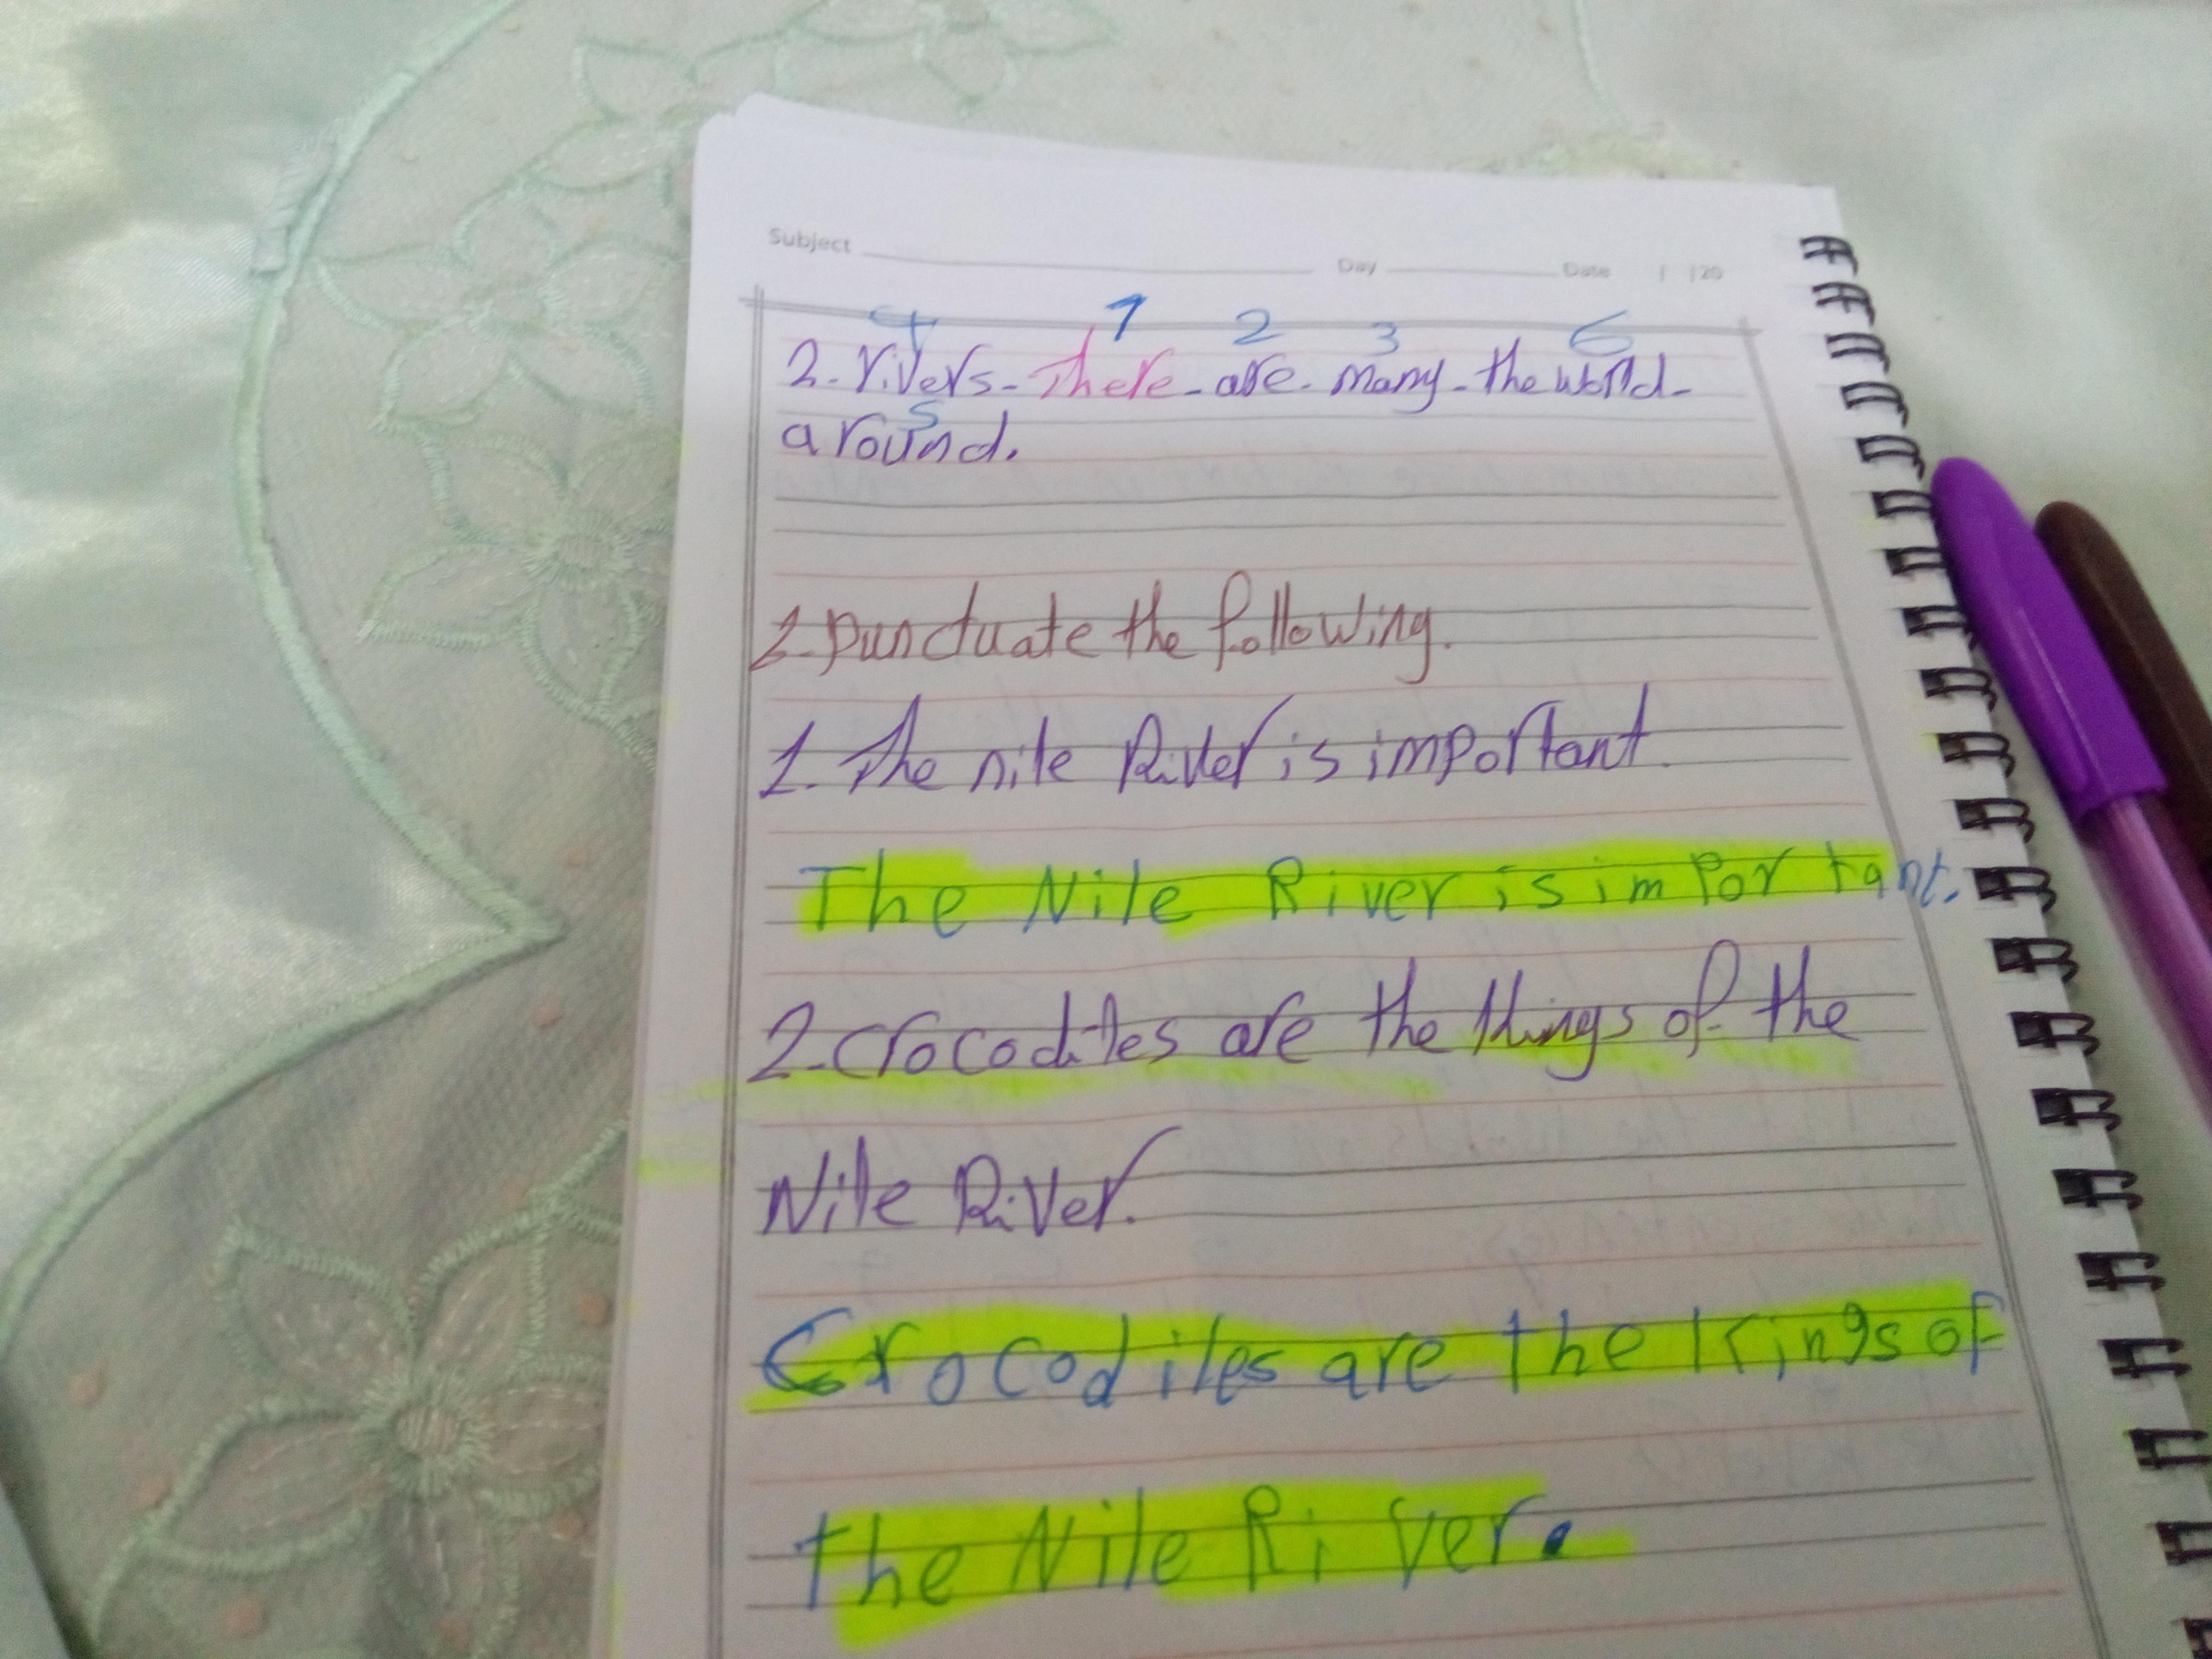 Subject Day Date | | 20
4 1 2 3 6
2. rivers - There - are - many - the world -
5
around.
2. punctuate the following.
1. The nile River is important.
The Nile River is important.
2. crocodiles are the things of the
Nile River.
Crocodiles are the kings of
the Nile River.